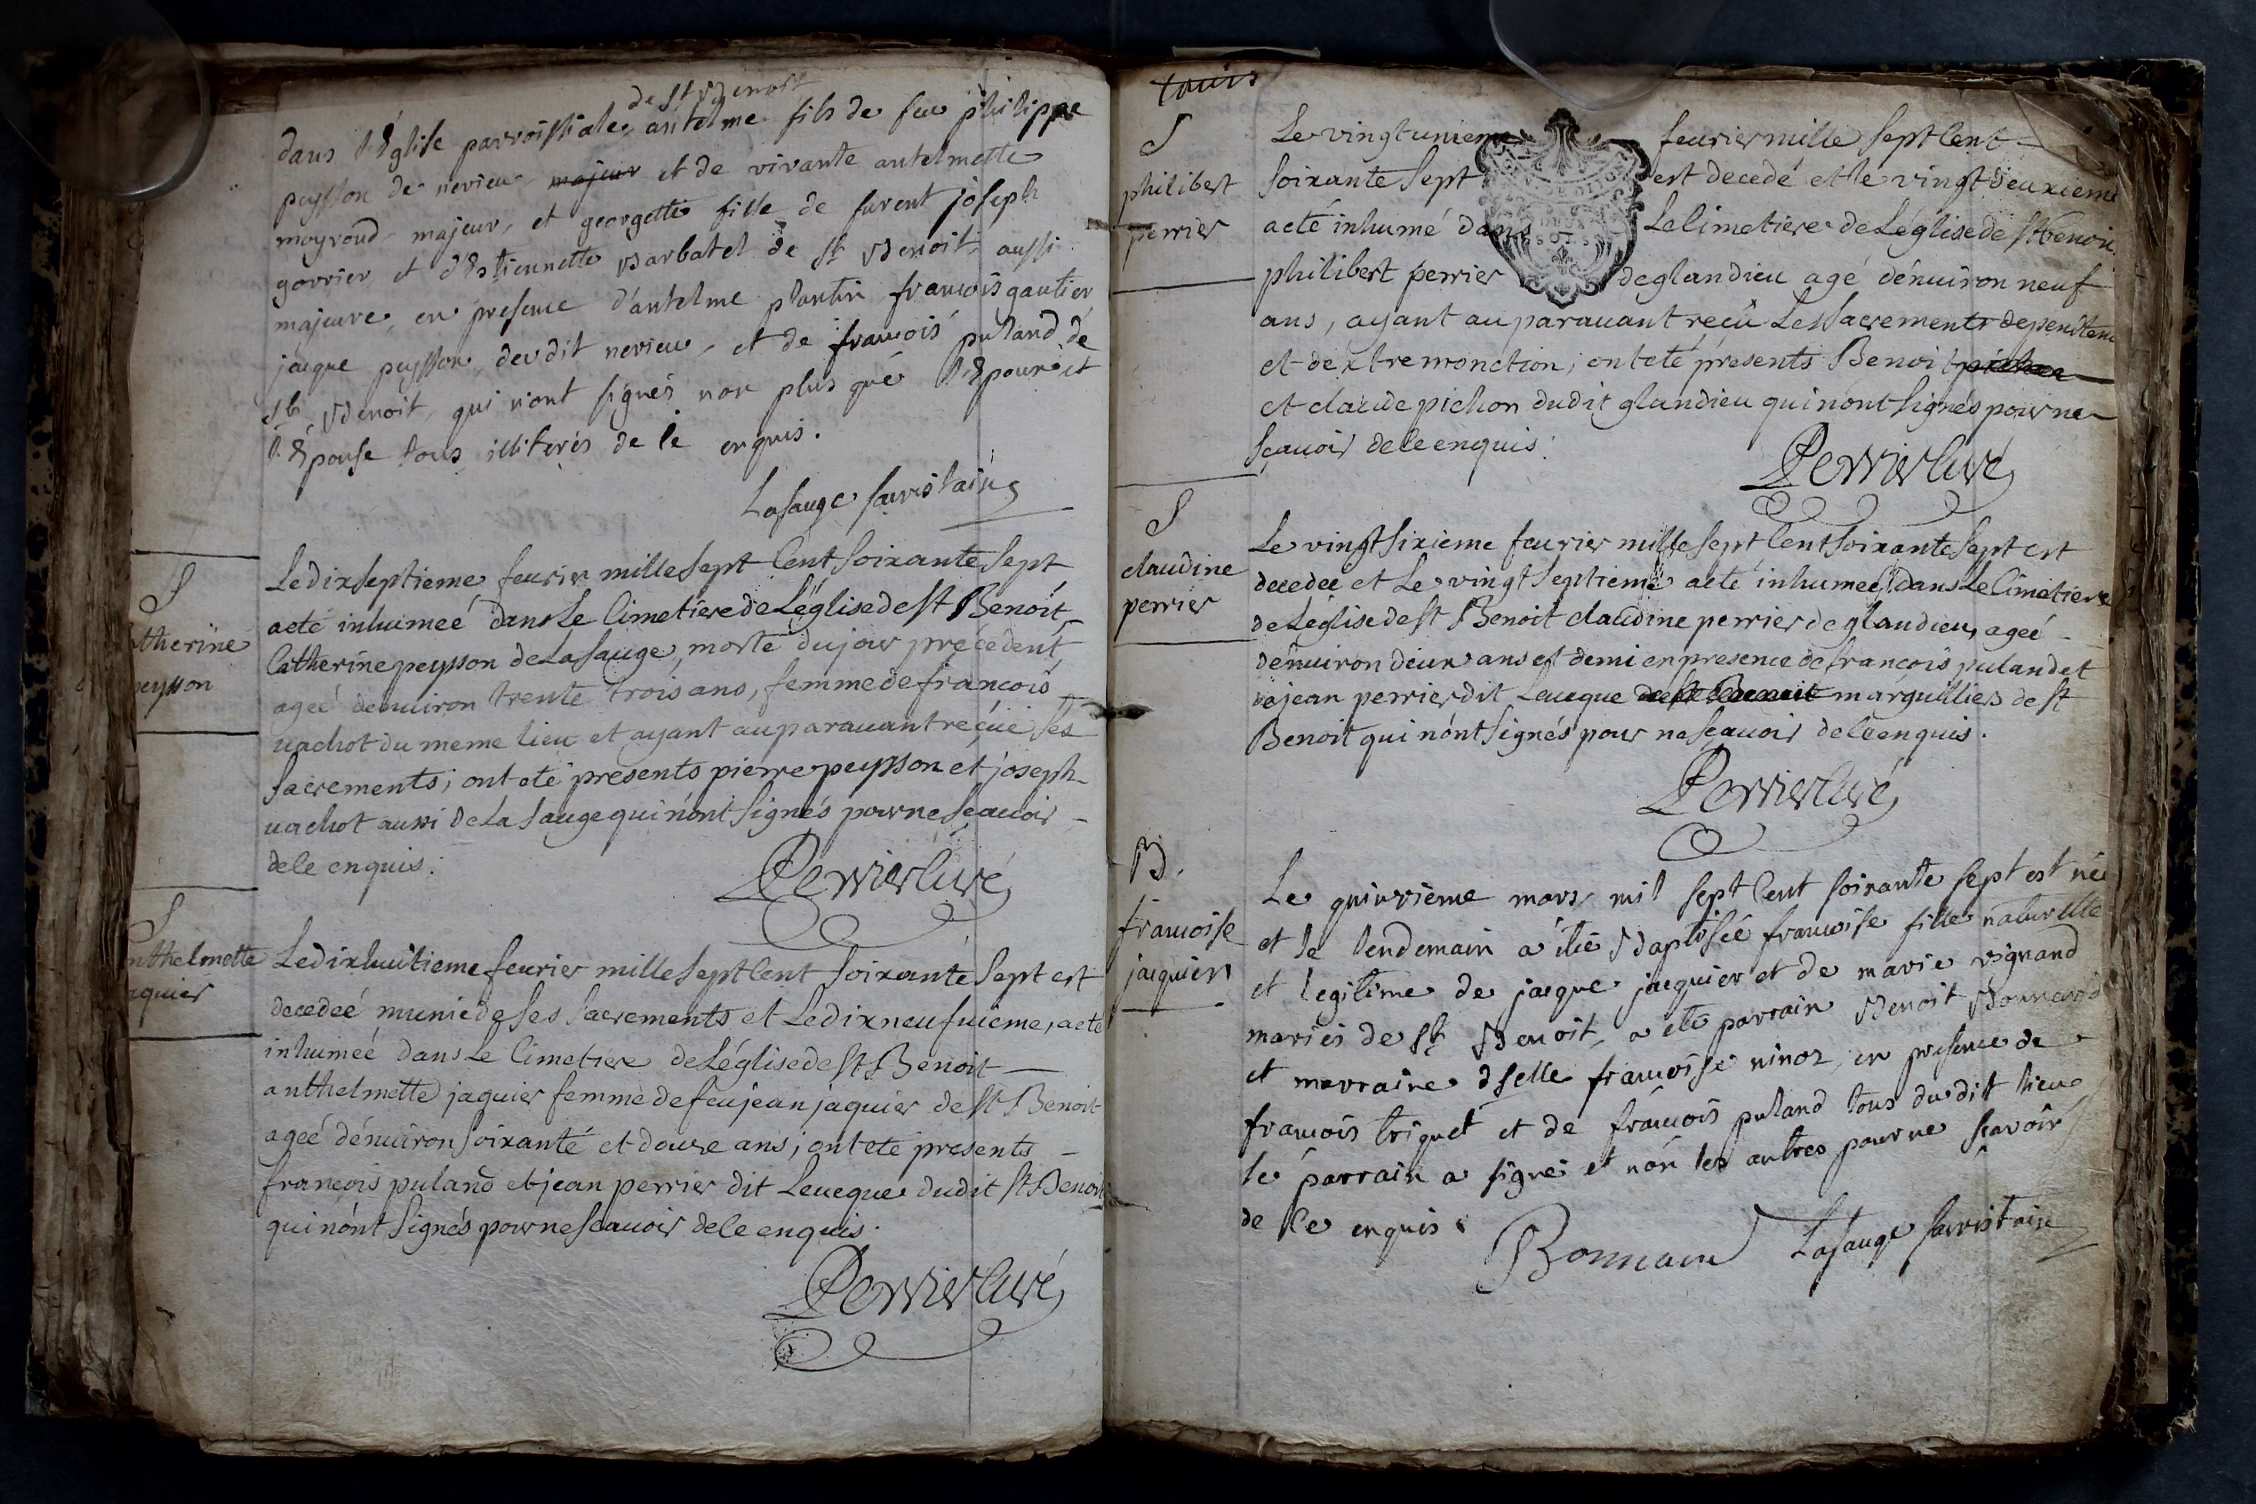 de st Benoit
dans l'Église parroissiale, antelme fils de feu philippe
peysson de nevieu majeur et de vivante antelmette
moyroud majeur, et georgette fille de furent joseph
gorrier et d'Estiennette Barbatel de St Benoit aussi
majeure, en presence d'antelme plantin francois gautier
jacque peysson, deudit nevieu, et de francois puland de
St Benoit, qui n'ont signés non plus qué l'Epoux et
l'Épouse tous illiterés de ce enquis.
Lasauge sacristain
S
catherine
peysson
Le dix septieme feurier mille sept Cent soixante sept
a eté inhumeé dans Le Cimetiere de Léglise de st Benoit
Catherine peysson de La sauge, morte du jour précédent
ageé denuiron trente trois ans, femme de francois
uachot du meme lieu et ayant auparauant reçue ses
sacrements; ont eté presents pierre peysson et joseph
uachot aussi de La sauge qui nónt signés pour ne scauoir
de ce enquis.
Perrier Curé
S
anthelmette
jaquier
Le dix huitieme feurier mille sept Cent soixante sept est
decedeé munie de ses sacrements et Le dix neufuieme, a eté
inhumeé dans Le Cimetiere de Léglise de st Benoit
anthelmette jaquier femme de feu jean jaquier de st Benoit
ageé dénuiron soixanté et douze ans; ont eté presents
francois puland et jean perrier dit Leueque dudit st Benoit
qui nónt signés pour ne scauoir de ce enquis.
Perrier Curé
S
philibert
perrier
Le vingt unieme feurier mille sept Cent
soixante sept est decedé et le vingt deuxieme
a eté inhumé dans Le Cimetiere de Léglise de st benoit
philibert perrier de glandieu agé dénuiron neuf
ans, ayant auparauant reçû Les sacrements de penitence
et dextremonction; ont eté présents Benoit pichon
et claude pichon dudit glandieu qui nónt signés pour ne
sçauoir de ce enquis.
Perrier Curé
S
claudine
perrier
Le vingt sixieme feurier mille sept Cent soixante sept est
decedeé et Le vingt septieme a eté inhumeé dans Le Cimetiere
de Léglise de st Benoit claudine perrier de glandieu, ageé
dénuiron deux ans et demi en presence de francois puland et
de jean perrier dit Leueque de st Benoit marguilliers de st
Benoit qui nónt signés pour ne sçauoir de ce enquis.
Perrier Curé
B.
francoise
jacquier
Le quinzième mars mil sept Cent soixante sept est née
et le lendemain a été Baptisée francoise fille naturelle
et legitime de jacque jacquier et de marie vignand
mariés de St Benoit, a été parrain Benoit Bonnard
et marraine dselle francoise ninoz, en presence de
francois triquet et de francois puland tous du dit lieu
le parrain a signé et non les autres pour ne scavoir
de Ce enquis.
Bonnard Lasauge sacristain